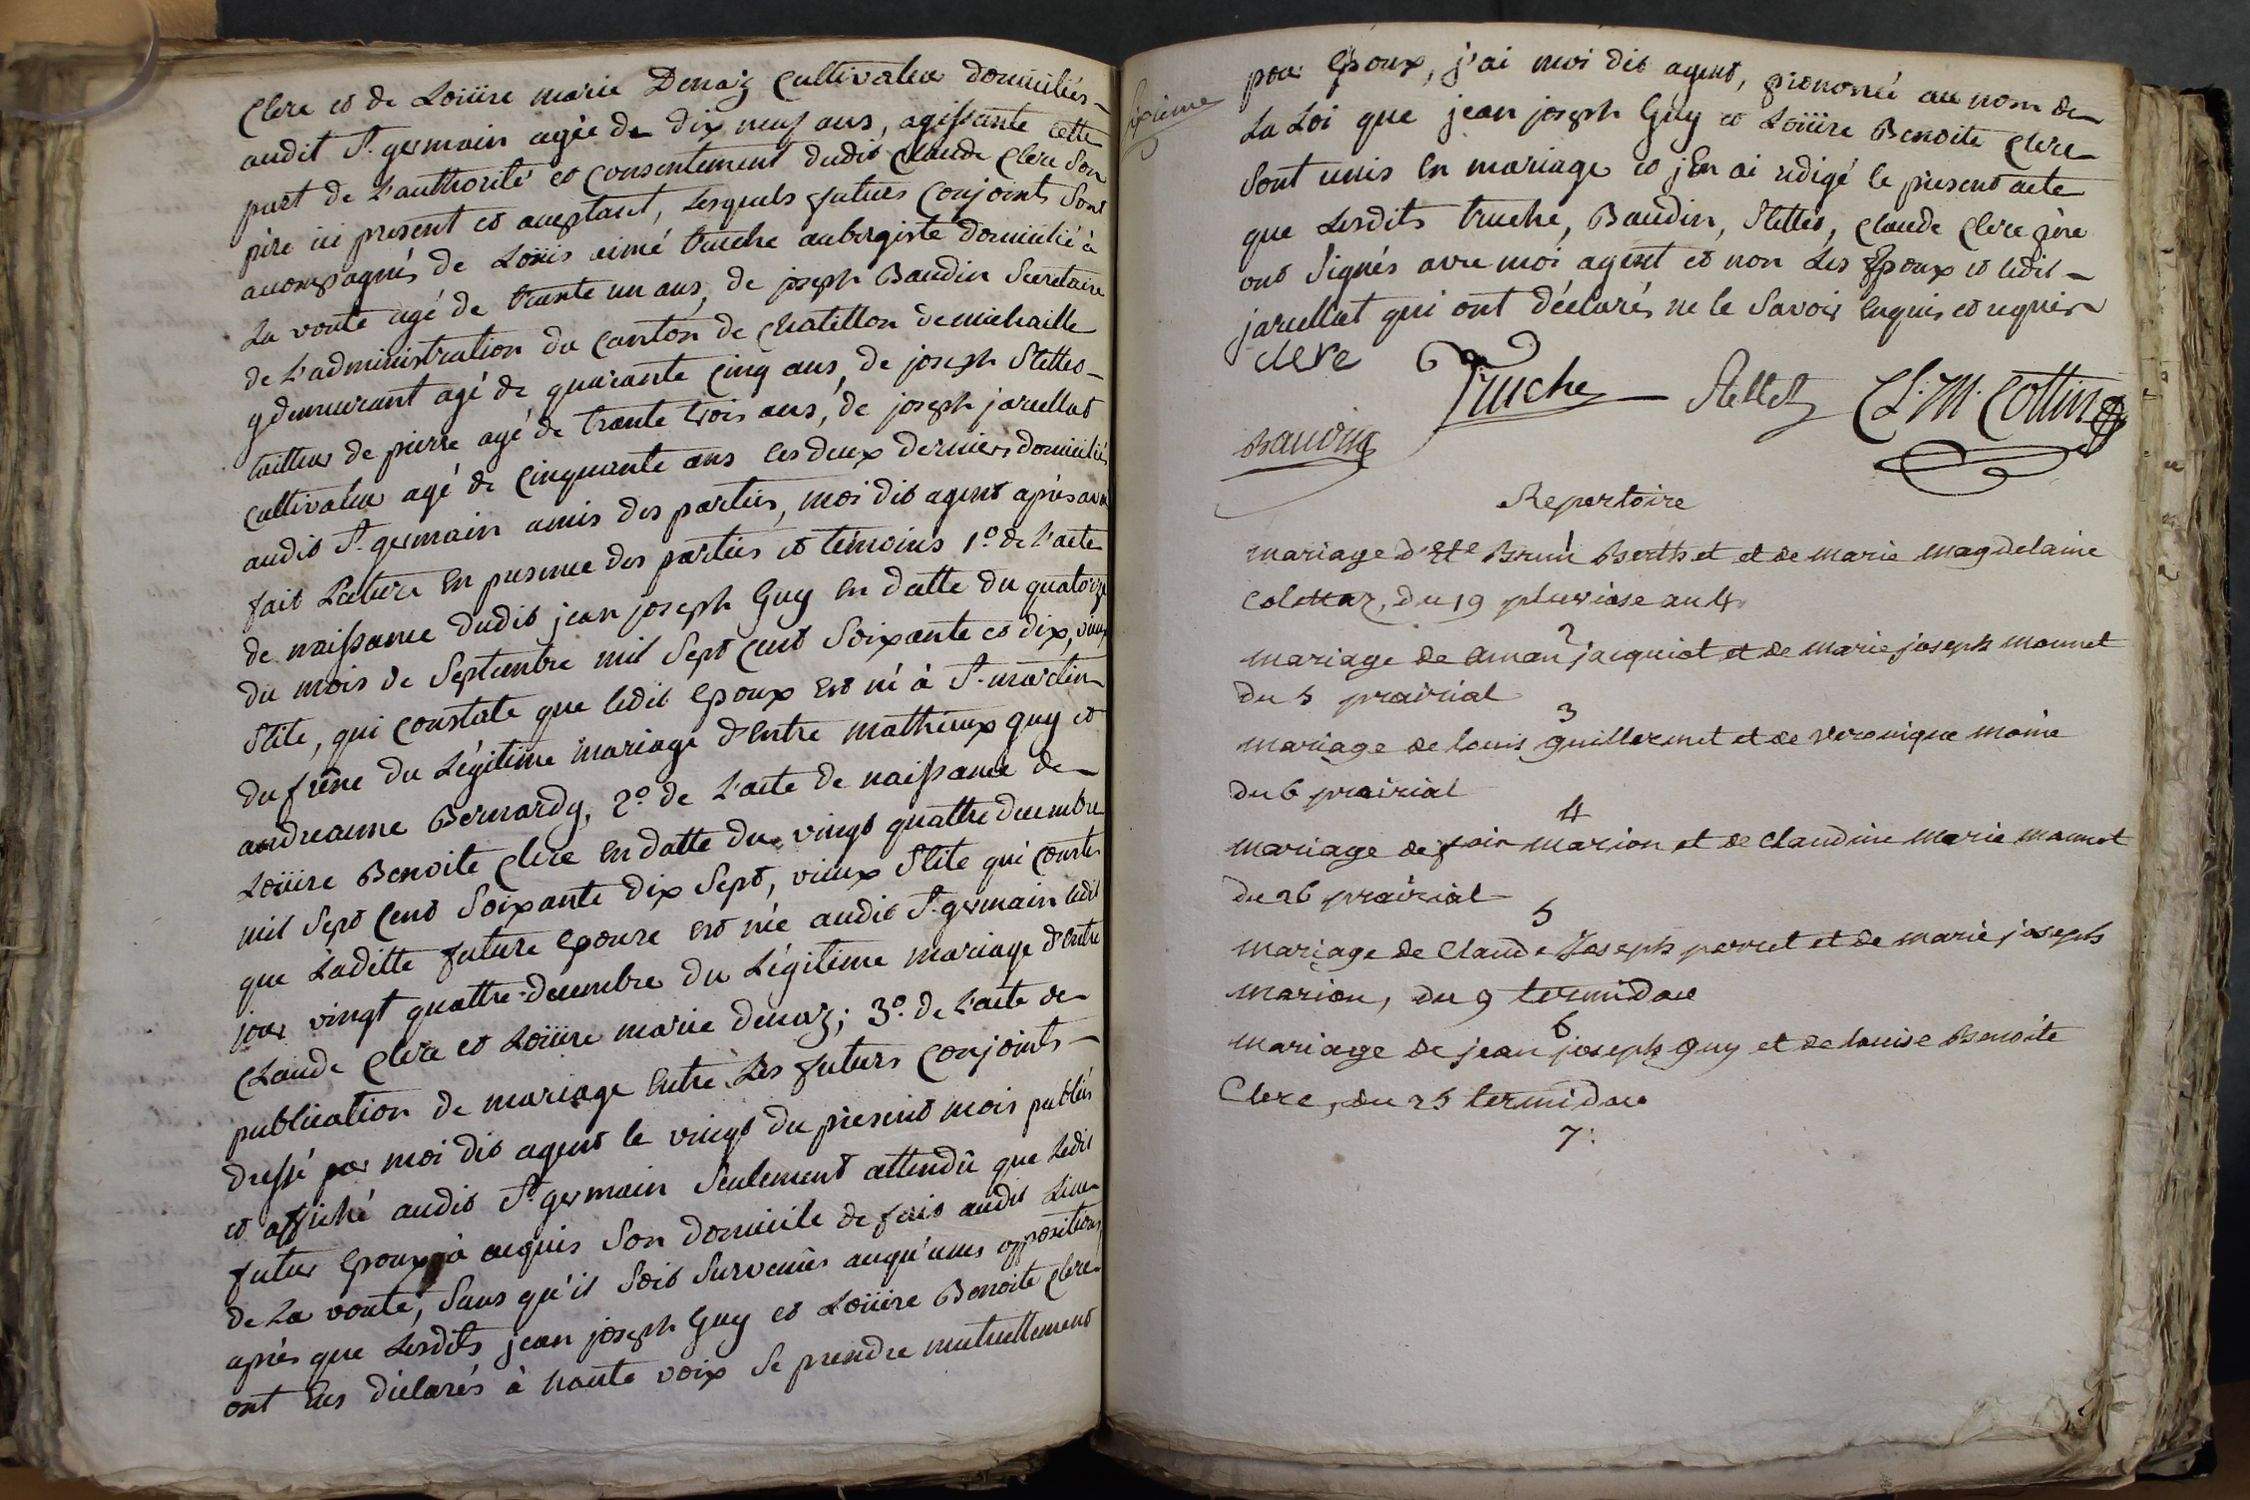 Clere et de Loüire marie Denaz Cultivateur domiciliés
audit St. germain agée de dix neuf ans, agissante cette
part de L'authorité et Consentement dudit Claude Clere Son
père ici present et aceptant, Lesquels futurs Conjoints Sont
acompagnés de Loüis aimé truche aubergiste domicilié à
La voute agé de trante un ans, de joseph Baudin Secretaire
de L'administration du Canton de Chatillon de michaille
y demeurant agé de quarante Cinq ans, de joseph Stettes
tailleur de pierre agé de trante trois ans, de joseph jacullat
Cultivateur agé de Cinquante ans Les deux derniers domiciliés
audit St. germain amis des parties, moi dit agent après avoir
fait Lecture En presence des parties et témoins 1º. de L'acte
de naissance dudit jean joseph Guy En datte du quatorze
du mois de Septembre mil Sept Cent Soixante et dix, vieux
Stile, qui Constate que ledit Epoux Est né à St. martin
du frêne du Légitime mariage d'Entre mathieux Guy et
andreanne Bernardy, 2º. de L'acte de naissance de
Loüire Benoite Clere En datte du vingt quattre decembre
mil Sept Cent Soixante dix Sept, vieux Stile qui Conste
que Laditte future Epouse Est née audit St. germain ledit
jour vingt quattre decembre du Légitime mariage d'Entre
Claude Clere et Loüire marie denaz; 3º. de L'acte de
publication de mariage Entre Les futurs Conjoints
dressé par moi dit agent le vingt du present mois publiés
et affiché audit St. germain Seulement attendû que Ledit
futur Epoux à acquis Son domicile de fait audit Lieu
de La voute, Sans qu'il Soit Survenües auqu'unes oppositions
après que Lesdits jean joseph Guy et Loüire Benoite Clere
ont Eus déclarés à haute voix Se prendre mutuellement
Sixieme
pour Epoux, j'ai moi dit agent, prononcé au nom de
La Loi que jean joseph Guy et Loüire Benoite Clere
Sont unis En mariage et j'En ai redigé le present acte
que Lesdits truche, Baudin, Stettes, Claude Clere père
ont Signés avec moi agent et non Les Epoux et ledit
jacullat qui ont déclarés ne le Savoir Enquis et requis
clere Truche Stettes Cl. M. Cottin
Baudin
Repertoire
mariage d' Bruné Berthet et de marie magdelaine
Colettaz, du 19 pluviose an 4
2
mariage de aman jacquiot et de marie joseph monnet
du 5 prairial
3
mariage de louis guillermet et de veronique moine
du 6 prairial
4
mariage de marion et de Claudine marie monnet
du 26 prairial
5
mariage de Claude Joseph perret et de marie joseph
marion, du 9 termidor
6
mariage de jean joseph guy et de louise Benoite
Clere, du 25 termidor
7: